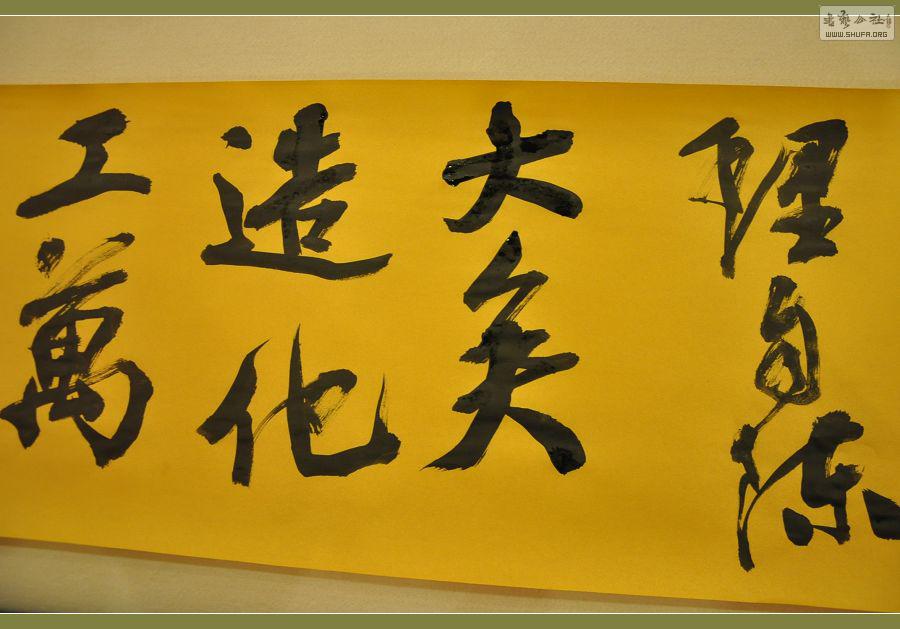 理自陳
大矣
造化
工萬
書藝公社
WWW.SHUFA.ORG